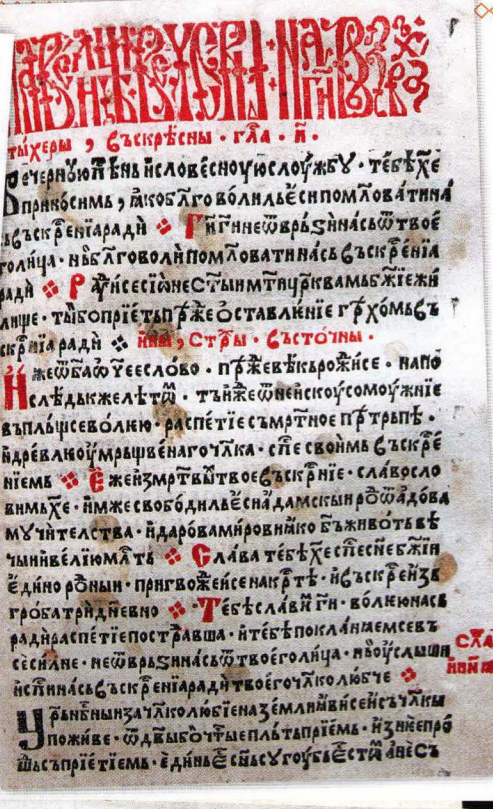 тыхеры , въскрѣсны · гла · и҃ ·
Вечернюю пѣснь и словесноую слоужбоу · тебѣ хе
приносимь , ꙗко бл҃говолиль еси помл҃овати на
въскрⷭ҇енїа ради ❖ Ги҃ ги҃ не ѿврьзи нась ѿ твоего
голица · нь бл҃говоли помл҃овати нась въскрⷭ҇енїа
ради ❖ Раⷣуисе сїѡне ст҃ыи мт҃и цр҃квамь бж҃їе жи
лище · ты бо прїеть прⷤ҇ѣе ѡставлѥнїе грѣхомь въ
скрⷭ҇нїа ради ❖ ины , стⷯры · въсточны ·
Иже ѿ ба ѿ҃че слово · прⷤ҇ѣе вѣкь рожⷣисе · на по
слѣдьк же лѣтѡⷨ · тъиже ѿ неискоусомоужнїе
въпльщсе волѥю · распетїе съмртное прѣтрьпѣ ·
и древлѥ оумрьщвенаго чл҃ка · сп҃се своимь въскрⷭ҇е
нїемь ❖ Еже из мртⷡыⷯ твое въскрⷭ҇нїе · славосло
вимь хе · имже свободиль еси адамскыи роⷣ ѿ адова
мучителства · и дарова мирови ꙗко бъ живѡть вѣ
чыи и велїю млⷭть ❖ Слава тебѣ хе сп҃се сн҃е бж҃їи
единородныи · пригвождеисе на крⷭтѣ · и въскрⷭ҇еи зь
гроба триⷣневно ❖ Тебѣ славⷨи ги҃ · волѥю нась
ради распетїе постраⷣавша · и тебѣ покланꙗемсе въ
сесилне · не ѿврьзи нась ѿ твоего лица · нь оуслыши
и сп҃си нась въскрⷭ҇енїа ради твоего чл҃колюбче ❖
Сла
инꙗ
Црь нбⷭныи за чл҃колюбїе на земли ꙗвисе и съ чл҃кы
поживе · ѿ дв҃ы бо чⷭтые плъть прїемь · и зь нѥе про
шⷣь съ прїетїемь · единь е сн҃ь сугоубь естⷡѡⷨ а не съ